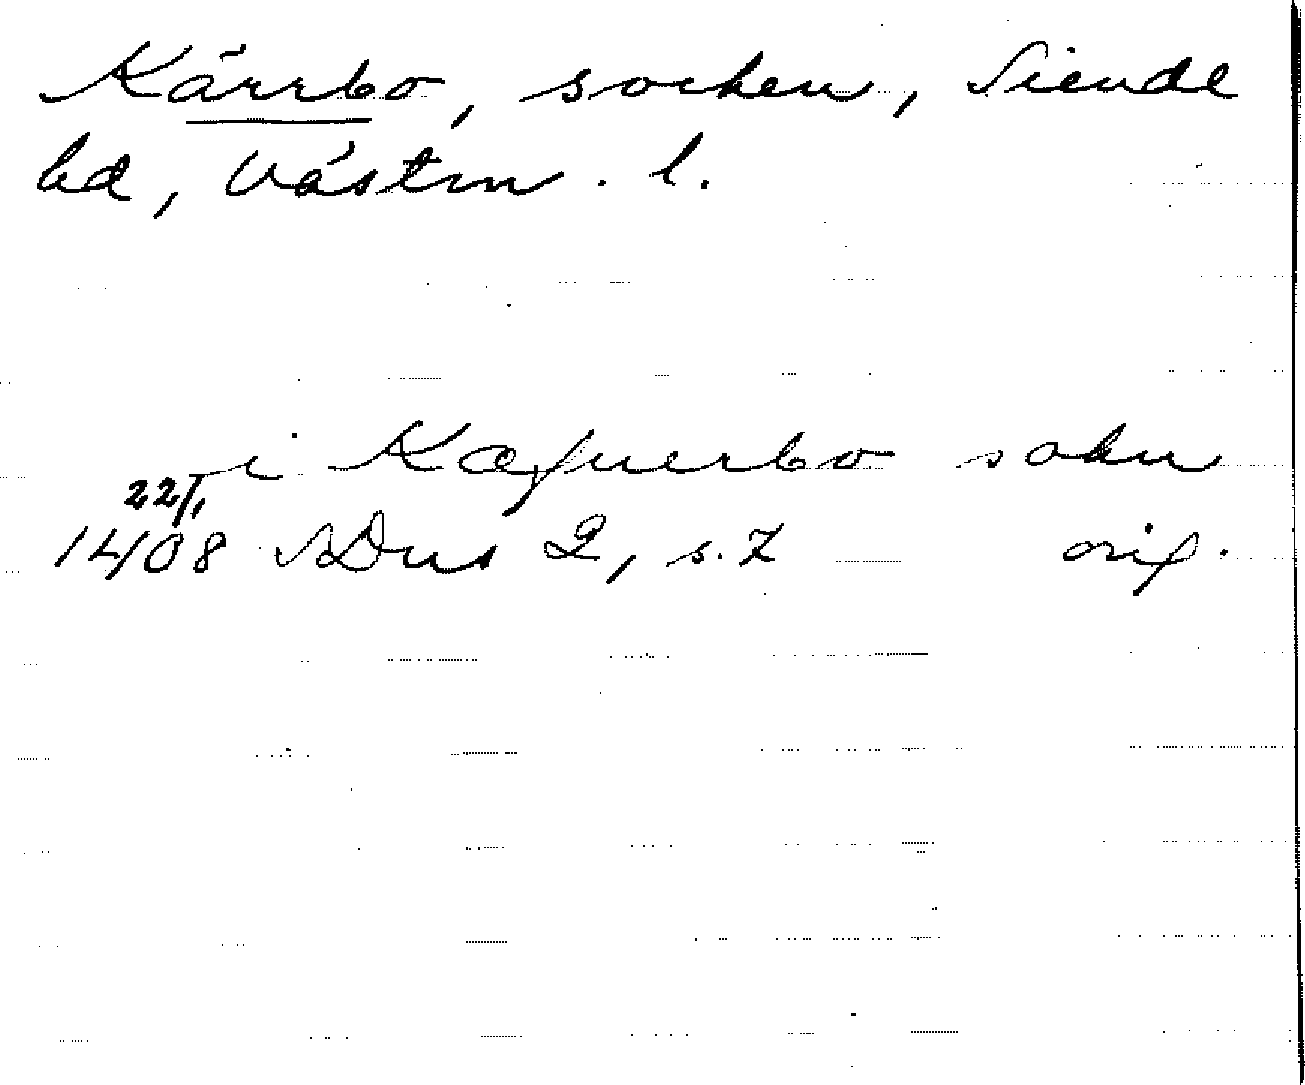 Kärrbo, socken, Siende
hd, Västm. l.
i Kæfnerbo sokn
22/1
1408 SDns 2, s. 7 orig.